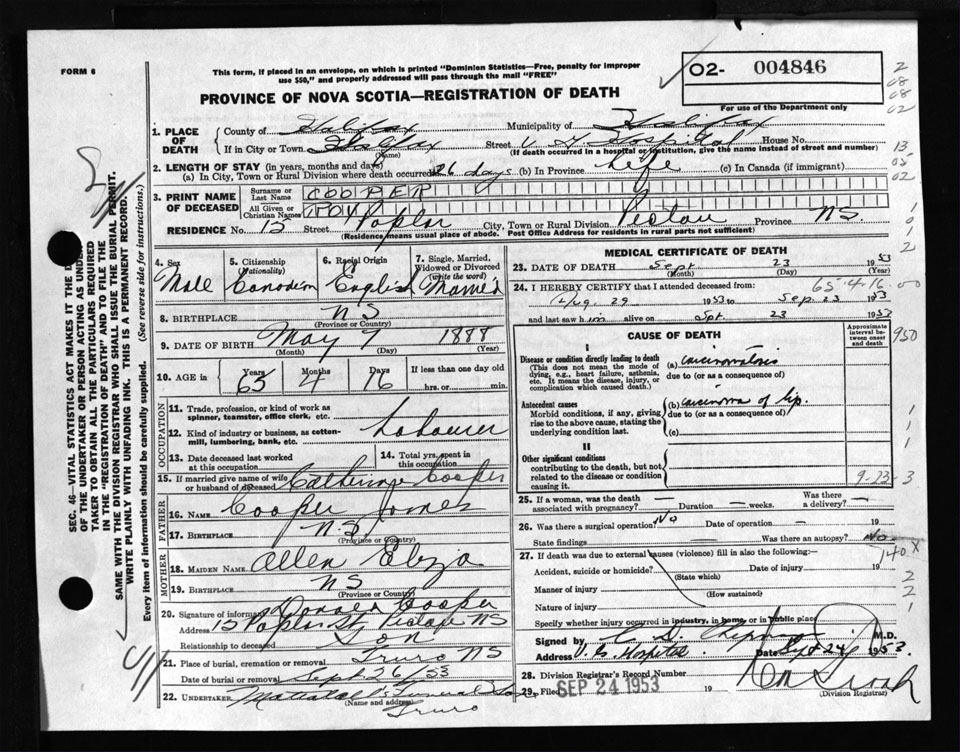 FORM 6
This form, if placed in an envelope, on which is printed "Dominion Statistics—Free, penalty for improper
use $50," and properly addressed will pass through the mail "FREE"
PROVINCE OF NOVA SCOTIA—REGISTRATION OF DEATH
O2- 004846
For use of the Department only
1. PLACE OF DEATH
County of Halifax Municipality of Halifax
If in City or Town Halifax (Name) Street V. G. Hospital House No.
(If death occurred in a hospital or institution, give the name instead of street and number)
2. LENGTH OF STAY (in years, months and days)
(a) In City, Town or Rural Division where death occurred 26 days (b) In Province Life (c) In Canada (if immigrant)
3. PRINT NAME OF DECEASED
Surname or Last Name COOPER
All Given or Christian Names
RESIDENCE No. 15 Street Poplar City, Town or Rural Division Pictou Province NS
(Residence means usual place of abode. Post Office Address for residents in rural parts not sufficient)
4. Sex Male
5. Citizenship (Nationality) Canadian
6. Racial Origin English
7. Single, Married, Widowed or Divorced (write the word) Married
8. BIRTHPLACE NS
(Province or Country)
9. DATE OF BIRTH May 7 1888
(Month) (Day) (Year)
10. AGE in Years 65 Months 4 Days 16 If less than one day old hrs. or min.
OCCUPATION
11. Trade, profession, or kind of work as spinner, teamster, office clerk, etc.
12. Kind of industry or business, as cotton-mill, lumbering, bank, etc. Labourer
13. Date deceased last worked at this occupation
14. Total yrs. spent in this occupation
15. If married give name of wife or husband of deceased Catherine Cooper
FATHER
16. NAME Cooper James
17. BIRTHPLACE NS
(Province or Country)
MOTHER
18. MAIDEN NAME Allen Eliza
19. BIRTHPLACE NS
(Province or Country)
20. Signature of informant Cooper
Address 15 Poplar St Pictou NS
Relationship to deceased Son
21. Place of burial, cremation or removal Truro NS
Date of burial or removal Sept 26/53
22. UNDERTAKER Funeral
(Name and address) Truro
MEDICAL CERTIFICATE OF DEATH
23. DATE OF DEATH Sept 23 1953
(Month) (Day) (Year)
24. I HEREBY CERTIFY that I attended deceased from: 65-4-16
Aug. 29 1953 to Sep. 23 1953
and last saw him alive on Spt. 23 1953
CAUSE OF DEATH
Approximate interval between onset and death
I
Disease or condition directly leading to death
(This does not mean the mode of dying, e.g., heart failure, asthenia, etc. It means the disease, injury, or complication which caused death.)
(a) carcinomatosis
due to (or as a consequence of)
Antecedent causes
Morbid conditions, if any, giving rise to the above cause, stating the underlying condition last.
(b) carcinoma of lip.
due to (or as a consequence of)
(c)
II
Other significant conditions
contributing to the death, but not related to the disease or condition causing it.
9-23-3
25. If a woman, was the death associated with pregnancy? — Duration — weeks. Was there a delivery? —
26. Was there a surgical operation? No Date of operation — 19
State findings — Was there an autopsy? No
27. If death was due to external causes (violence) fill in also the following:—
Accident, suicide or homicide? (State which) Date of injury 19
Manner of injury (How sustained)
Nature of injury
Specify whether injury occurred in industry, in home, or in public place
Signed by M.D.
Address V. G. Hospital Date Sept 24 1953
28. Division Registrar's Record Number
29. Filed SEP 24 1953 19
(Division Registrar)
SEC. 46—VITAL STATISTICS ACT MAKES IT THE
OF THE UNDERTAKER OR PERSON ACTING AS UNDER-
TAKER TO OBTAIN ALL THE PARTICULARS REQUIRED
IN THE "REGISTRATION OF DEATH" AND TO FILE THE
SAME WITH THE DIVISION REGISTRAR WHO SHALL ISSUE THE BURIAL PERMIT.
WRITE PLAINLY WITH UNFADING INK. THIS IS A PERMANENT RECORD.
Every item of information should be carefully supplied. (See reverse side for instructions.)
2
08
08
02
13
05
02
1
0
1
2
00
950
1
1
1
140 X
2
2